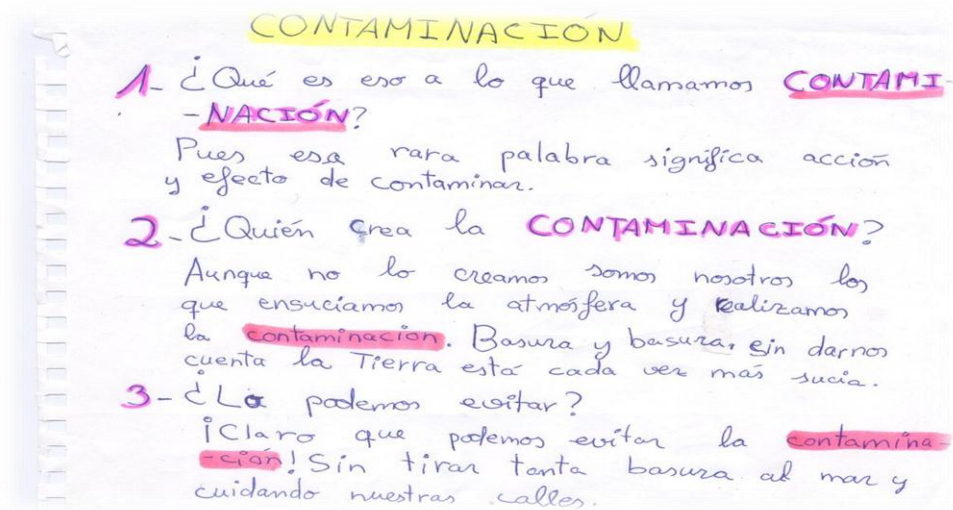 CONTAMINACIÓN
1- ¿Qué es eso a lo que llamamos CONTAMI-
-NACIÓN?
Pues esa rara palabra significa acción
y efecto de contaminar.
2- ¿Quién crea la CONTAMINACIÓN?
Aunque no lo creamos somos nosotros los
que ensuciamos la atmósfera y realizamos
la contaminación. Basura y basura, sin darnos
cuenta la Tierra está cada vez más sucia.
3- ¿La podemos evitar?
¡Claro que podemos evitar la contamina-
-ción! Sin tirar tanta basura al mar y
cuidando nuestras calles.